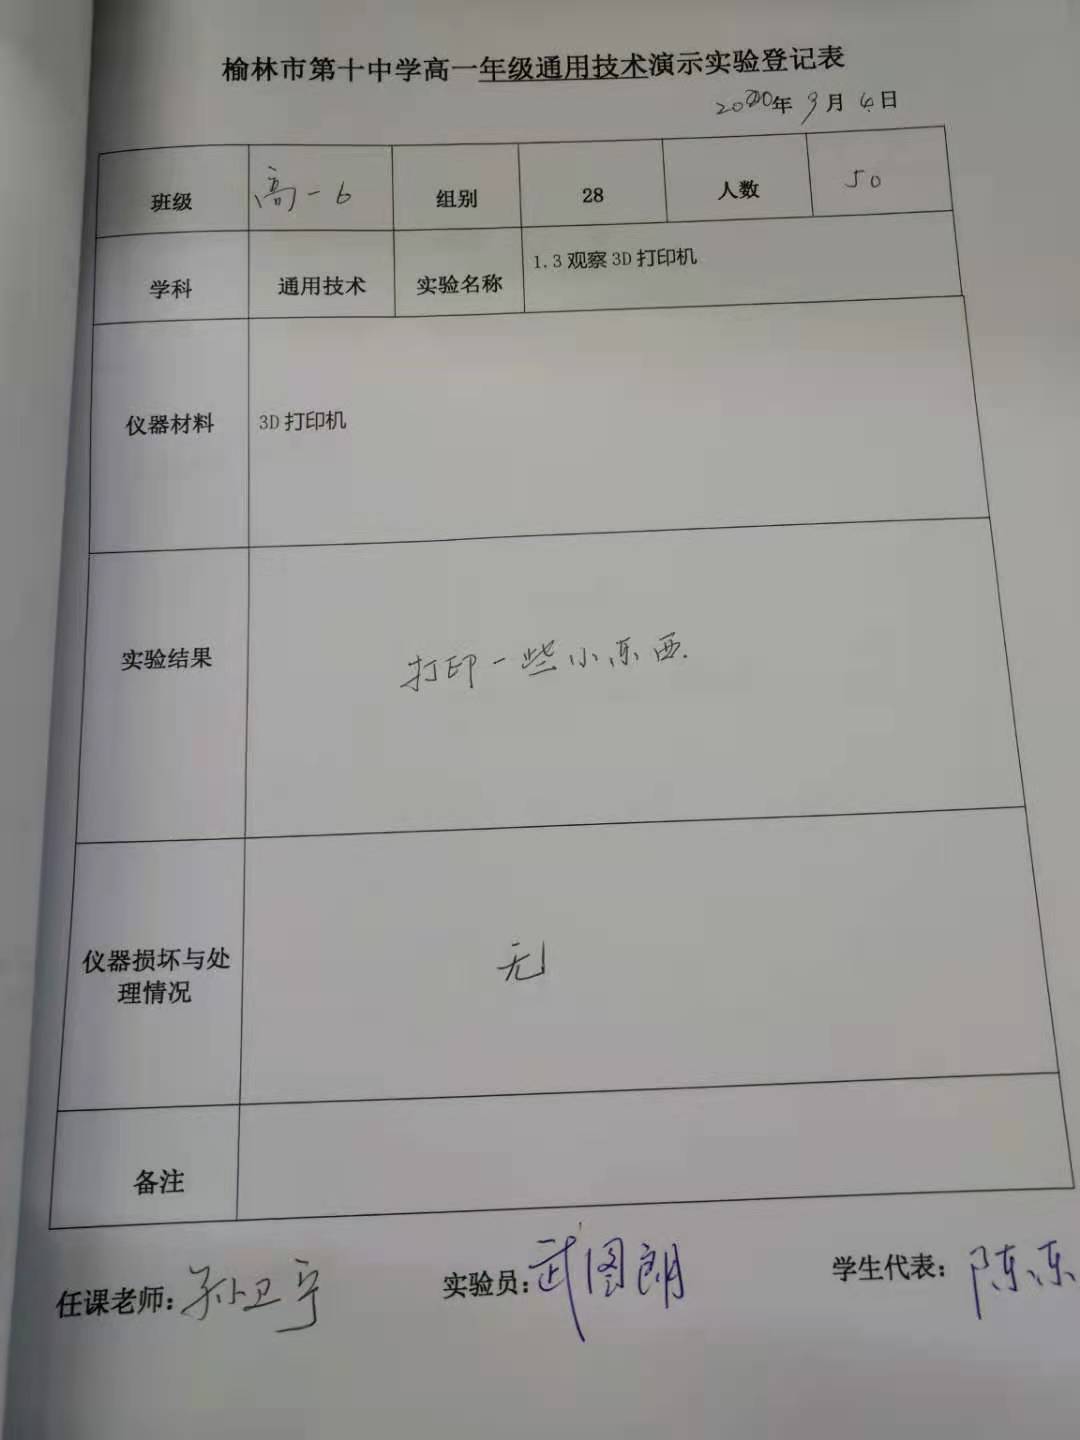 榆林市第十中学高一年级通用技术演示实验登记表
2020年 3月 4日
班级 高一6 组别 28 人数 50
学科 通用技术 实验名称 1.3 观察 3D 打印机
仪器材料 3D 打印机
实验结果 打印一些小东西.
仪器损坏与处
理情况 无
备注
任课老师: 孙卫宁 实验员: 武图朗 学生代表: 陈东